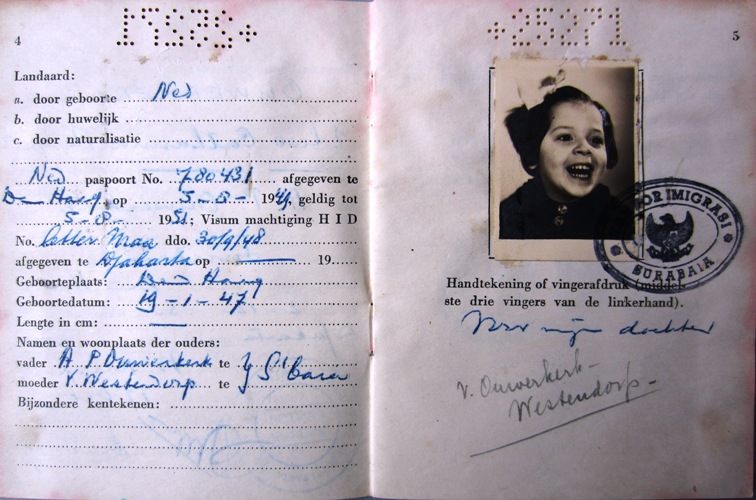 4
25271
Landaard:
a. door geboorte Ned
b. door huwelijk
c. door naturalisatie
Ned paspoort No. 780431 afgegeven te
Den Haag, op 5-8- 1949, geldig tot
5-8- 1951; Visum machtiging H I D
No. letter ddo. 30/9/48
afgegeven te Djakarta op 19
Geboorteplaats: Den Haag
Geboortedatum: 19-1-47
Lengte in cm:
Namen en woonplaats der ouders:
vader A P Ouwerkerk te
moeder V. Westendorp te
Bijzondere kentekenen:
+25271
5
KANTOR IMIGRASI
SURABAIA
Handtekening of vingerafdruk (middels
ste drie vingers van de linkerhand).
Voor mijn dochter
V. Ouwerkerk-
Westendorp-